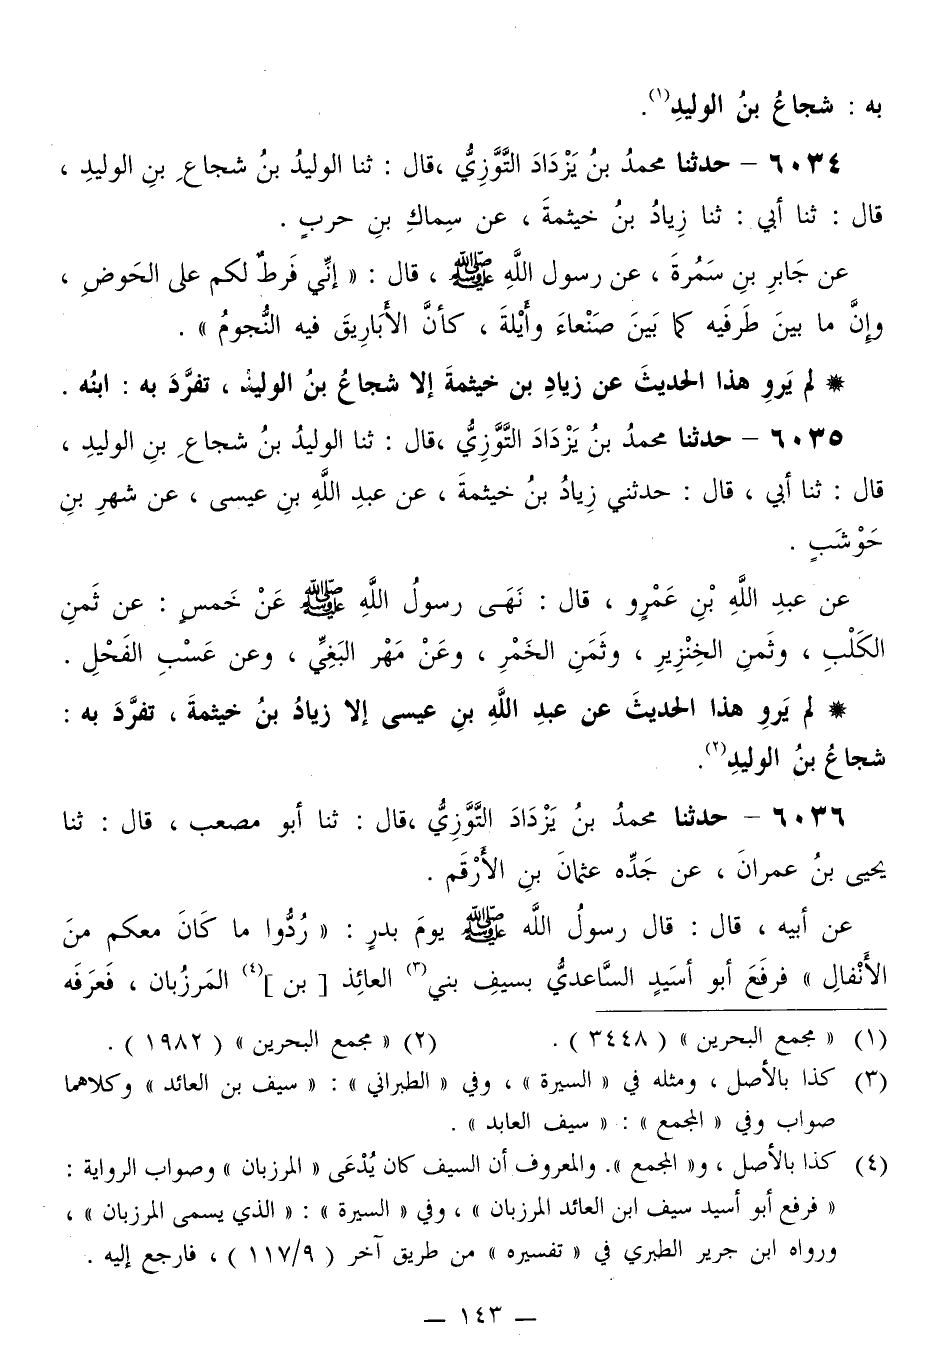 به : شجاعُ بنُ الوليدِ(١).
٦٠٣٤ – حدثنا محمدُ بنُ يَزْدَادَ التَّوَّزِيُّ ،قال : ثنا الوليدُ بنُ شجاعِ بنِ الوليدِ ،
قال : ثنا أبي : ثنا زيادُ بنُ خيثمةَ ، عن سِماكِ بنِ حربٍ .
عن جَابرِ بنِ سَمُرةَ ، عن رسول اللَّهِ ﷺ ، قال : « إنِّي فَرطٌ لكم على الحَوضِ ،
وإنَّ ما بينَ طَرفَيه كما بَينَ صَنْعاءَ وأَيْلةَ ، كأنَّ الأَبَارِيقَ فيه النُّجومُ » .
* لم يَروِ هذا الحديثَ عن زيادِ بن خيثمةَ إلا شجاعُ بنُ الوليد ، تفرَّدَ به : ابنُه .
٦٠٣٥ – حدثنا محمدُ بنُ يَزْدَادَ التَّوَّزِيُّ ،قال : ثنا الوليدُ بنُ شجاعِ بنِ الوليدِ ،
قال : ثنا أبي ، قال : حدثني زِيادُ بنُ خيثمةَ ، عن عبدِ اللَّهِ بنِ عيسى ، عن شهرِ بنِ
حَوْشَبٍ .
عن عبدِ اللَّهِ بْنِ عَمْرٍو ، قال : نَهَى رسولُ اللَّهِ ﷺ عَنْ خَمسٍ : عن ثَمنِ
الكَلْبِ ، وثَمنِ الخِنْزِيرِ ، وثَمنِ الخَمْرِ ، وعَنْ مَهْر البَغِيِّ ، وعن عَسْبِ الفَحْلِ .
* لم يَروِ هذا الحديثَ عن عبدِ اللَّهِ بنِ عيسى إلا زيادُ بنُ خيثمةَ ، تفرَّدَ به :
شجاعُ بنُ الوليدِ(٢).
٦٠٣٦ – حدثنا محمدُ بنُ يَزْدَادَ التَّوَّزِيُّ ،قال : ثنا أبو مصعب ، قال : ثنا
يحيى بنُ عمرانَ ، عن جَدِّه عثمانَ بنِ الأَرْقَم .
عن أبيه ، قال : قال رسولُ الله ﷺ يومَ بدرٍ : « رُدُّوا ما كَانَ معكم منَ
الأَنْفالِ » فرفَعَ أبو أسَيدٍ السَّاعديُّ بسيفِ بني(٣) العائِذ [ بن ](٤) المَرزُبان ، فَعَرَفَه
(١) « مجمع البحرين » ( ٣٤٤٨ ) . (٢) « مجمع البحرين » ( ١٩٨٢ ) .
(٣) كذا بالأصل ، ومثله في « السيرة » ، وفي « الطبراني » : « سيف بن العائد » وكلاهما
صواب وفي « المجمع » : « سيف العابد » .
(٤) كذا بالأصل ، و« المجمع ». والمعروف أن السيف كان يُدْعَى « المرزبان » وصواب الرواية :
« فرفع أبو أسيد سيف ابن العائد المرزبان » ، وفي « السيرة » : « الذي يسمى المرزبان » ،
ورواه ابن جرير الطبري في « تفسيره » من طريق آخر ( ١١٧/٩ ) ، فارجع إليه .
— ١٤٣ —